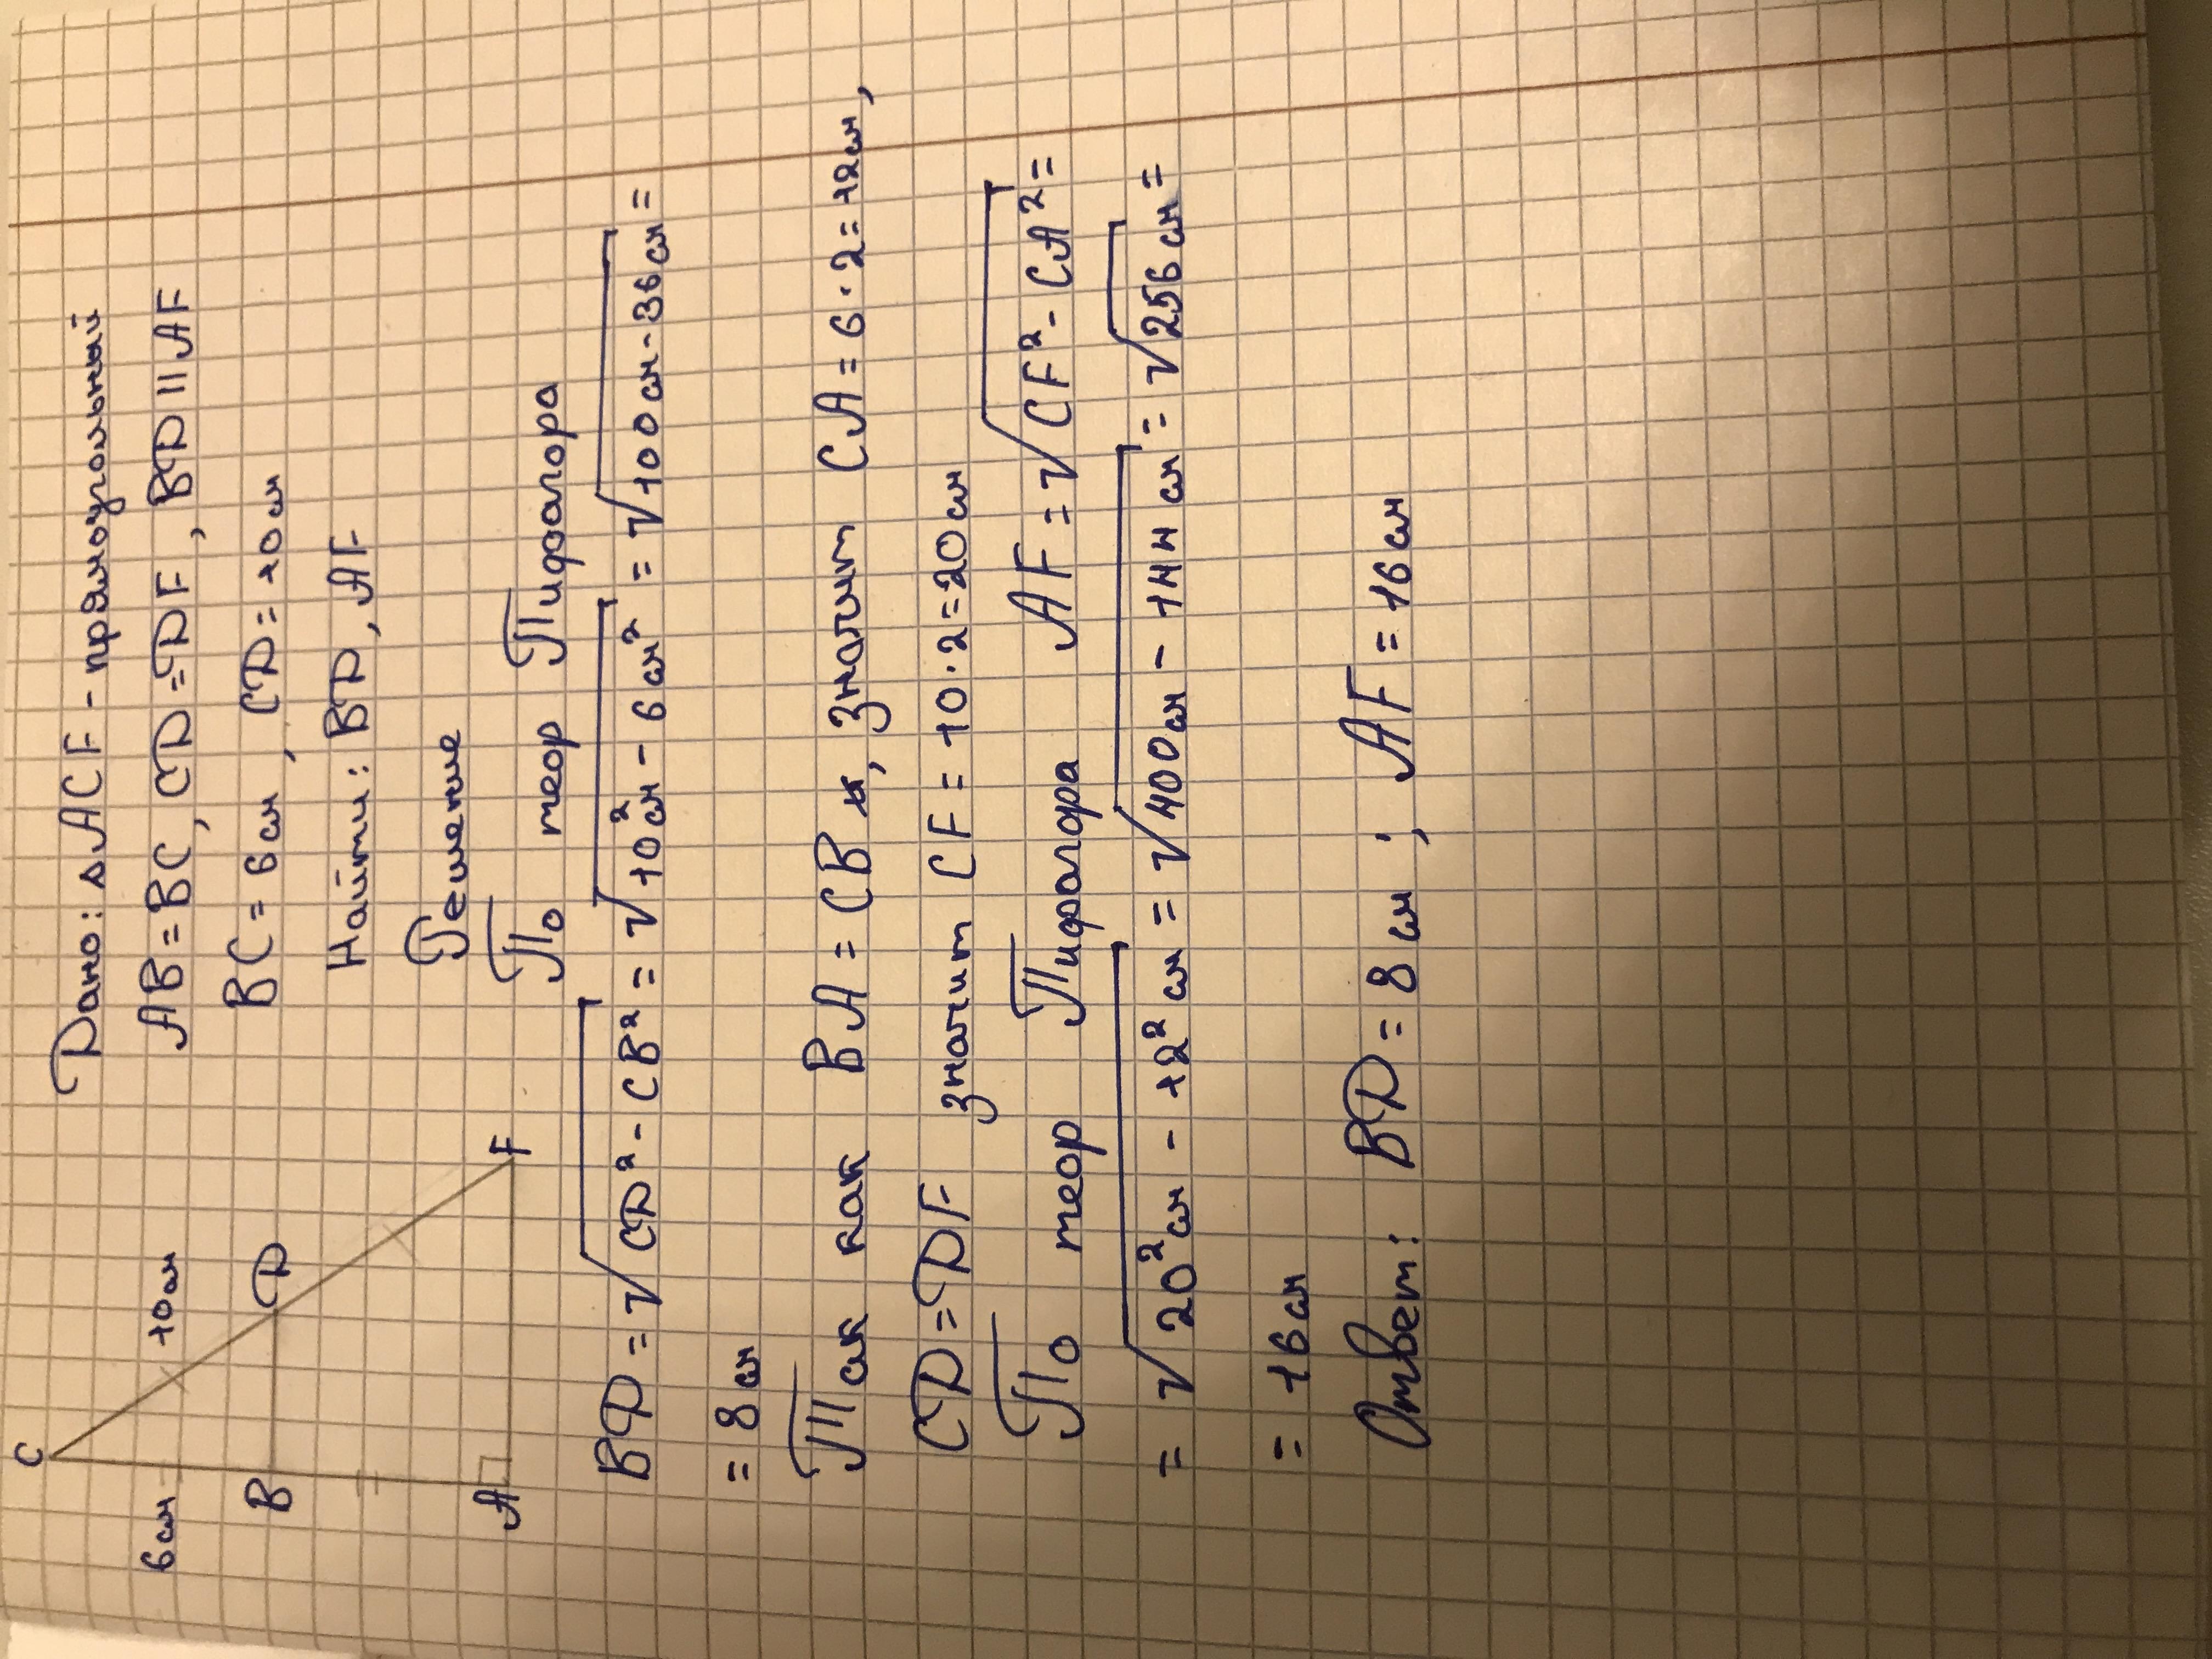 C
6см
10см
B
D
A
F
Дано: △ACF - прямоугольный
AB = BC, CD = DF, BD || AF
BC = 6см, CD = 10см
Найти: BD, AF
Решение
По теор Пифагора
BD = √CD² - CB² = √10²см - 6см² = √100см - 36см =
= 8см
Так как BA = CB, значит CA = 6·2 = 12см,
CD = DF значит CF = 10·2 = 20см
По теор Пифагора AF = √CF² - CA² =
= √20²см - 12²см = √400см - 144см = √256см =
= 16см
Ответ: BD = 8см; AF = 16см